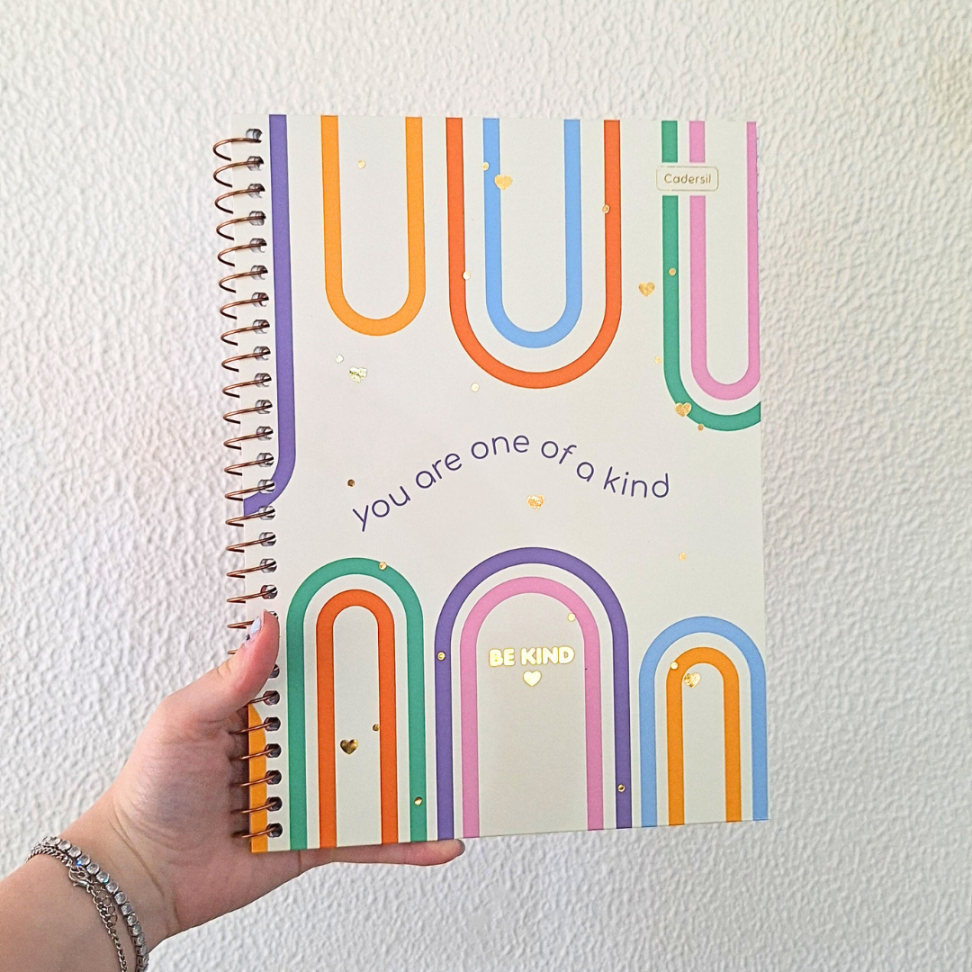 Cadersil
you are one of a kind
BE KIND